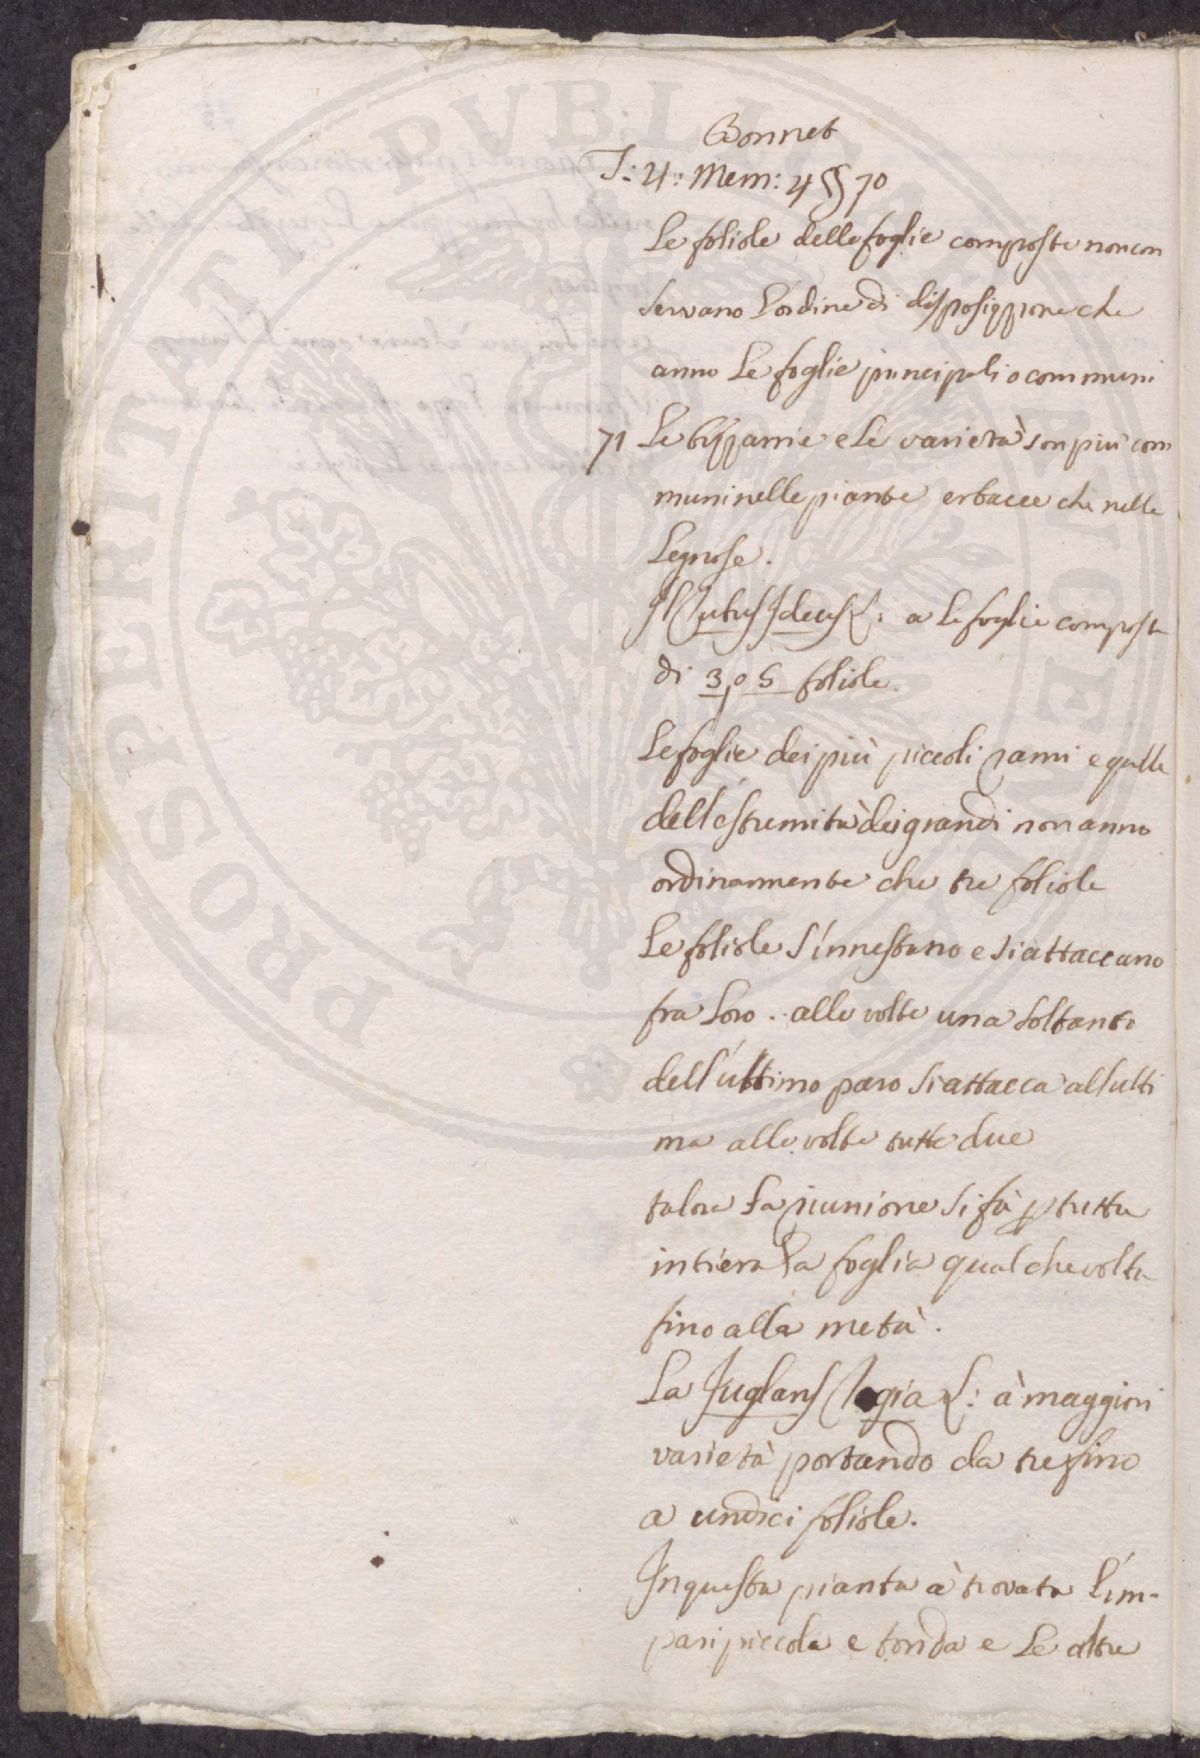 Bonnet
T: 4: Mem: 4 §§ 70
Le foliole delle foglie composte non con
servano l'ordine di disposizzione che
anno le foglie principali o communi
71 Le bizzarrie e le varietà son più com
muni nelle piante erbacee che nelle
legnose.
Il Rubus Ideus L: a le foglie composte
di 3, o 5 foliole.
Le foglie dei più piccoli rami e quelle
dell'estremità dei grandi non anno
ordinariamente che tre foliole
Le foliole s'innestano e si attaccano
fra loro .. alle volte una soltanto
dell'ultimo paro si attacca all'ulti
ma alle volte tutte due
talora la riunione si fà p tutta
intiera la foglia qualche volta
fino alla metà.
La Juglans Regia L: à maggiori
varietà portando da tre fino
a undici foliole.
In questa pianta à trovata l'im-
pari piccola e tonda e le altre
PROSPERITATI PUBLICAE